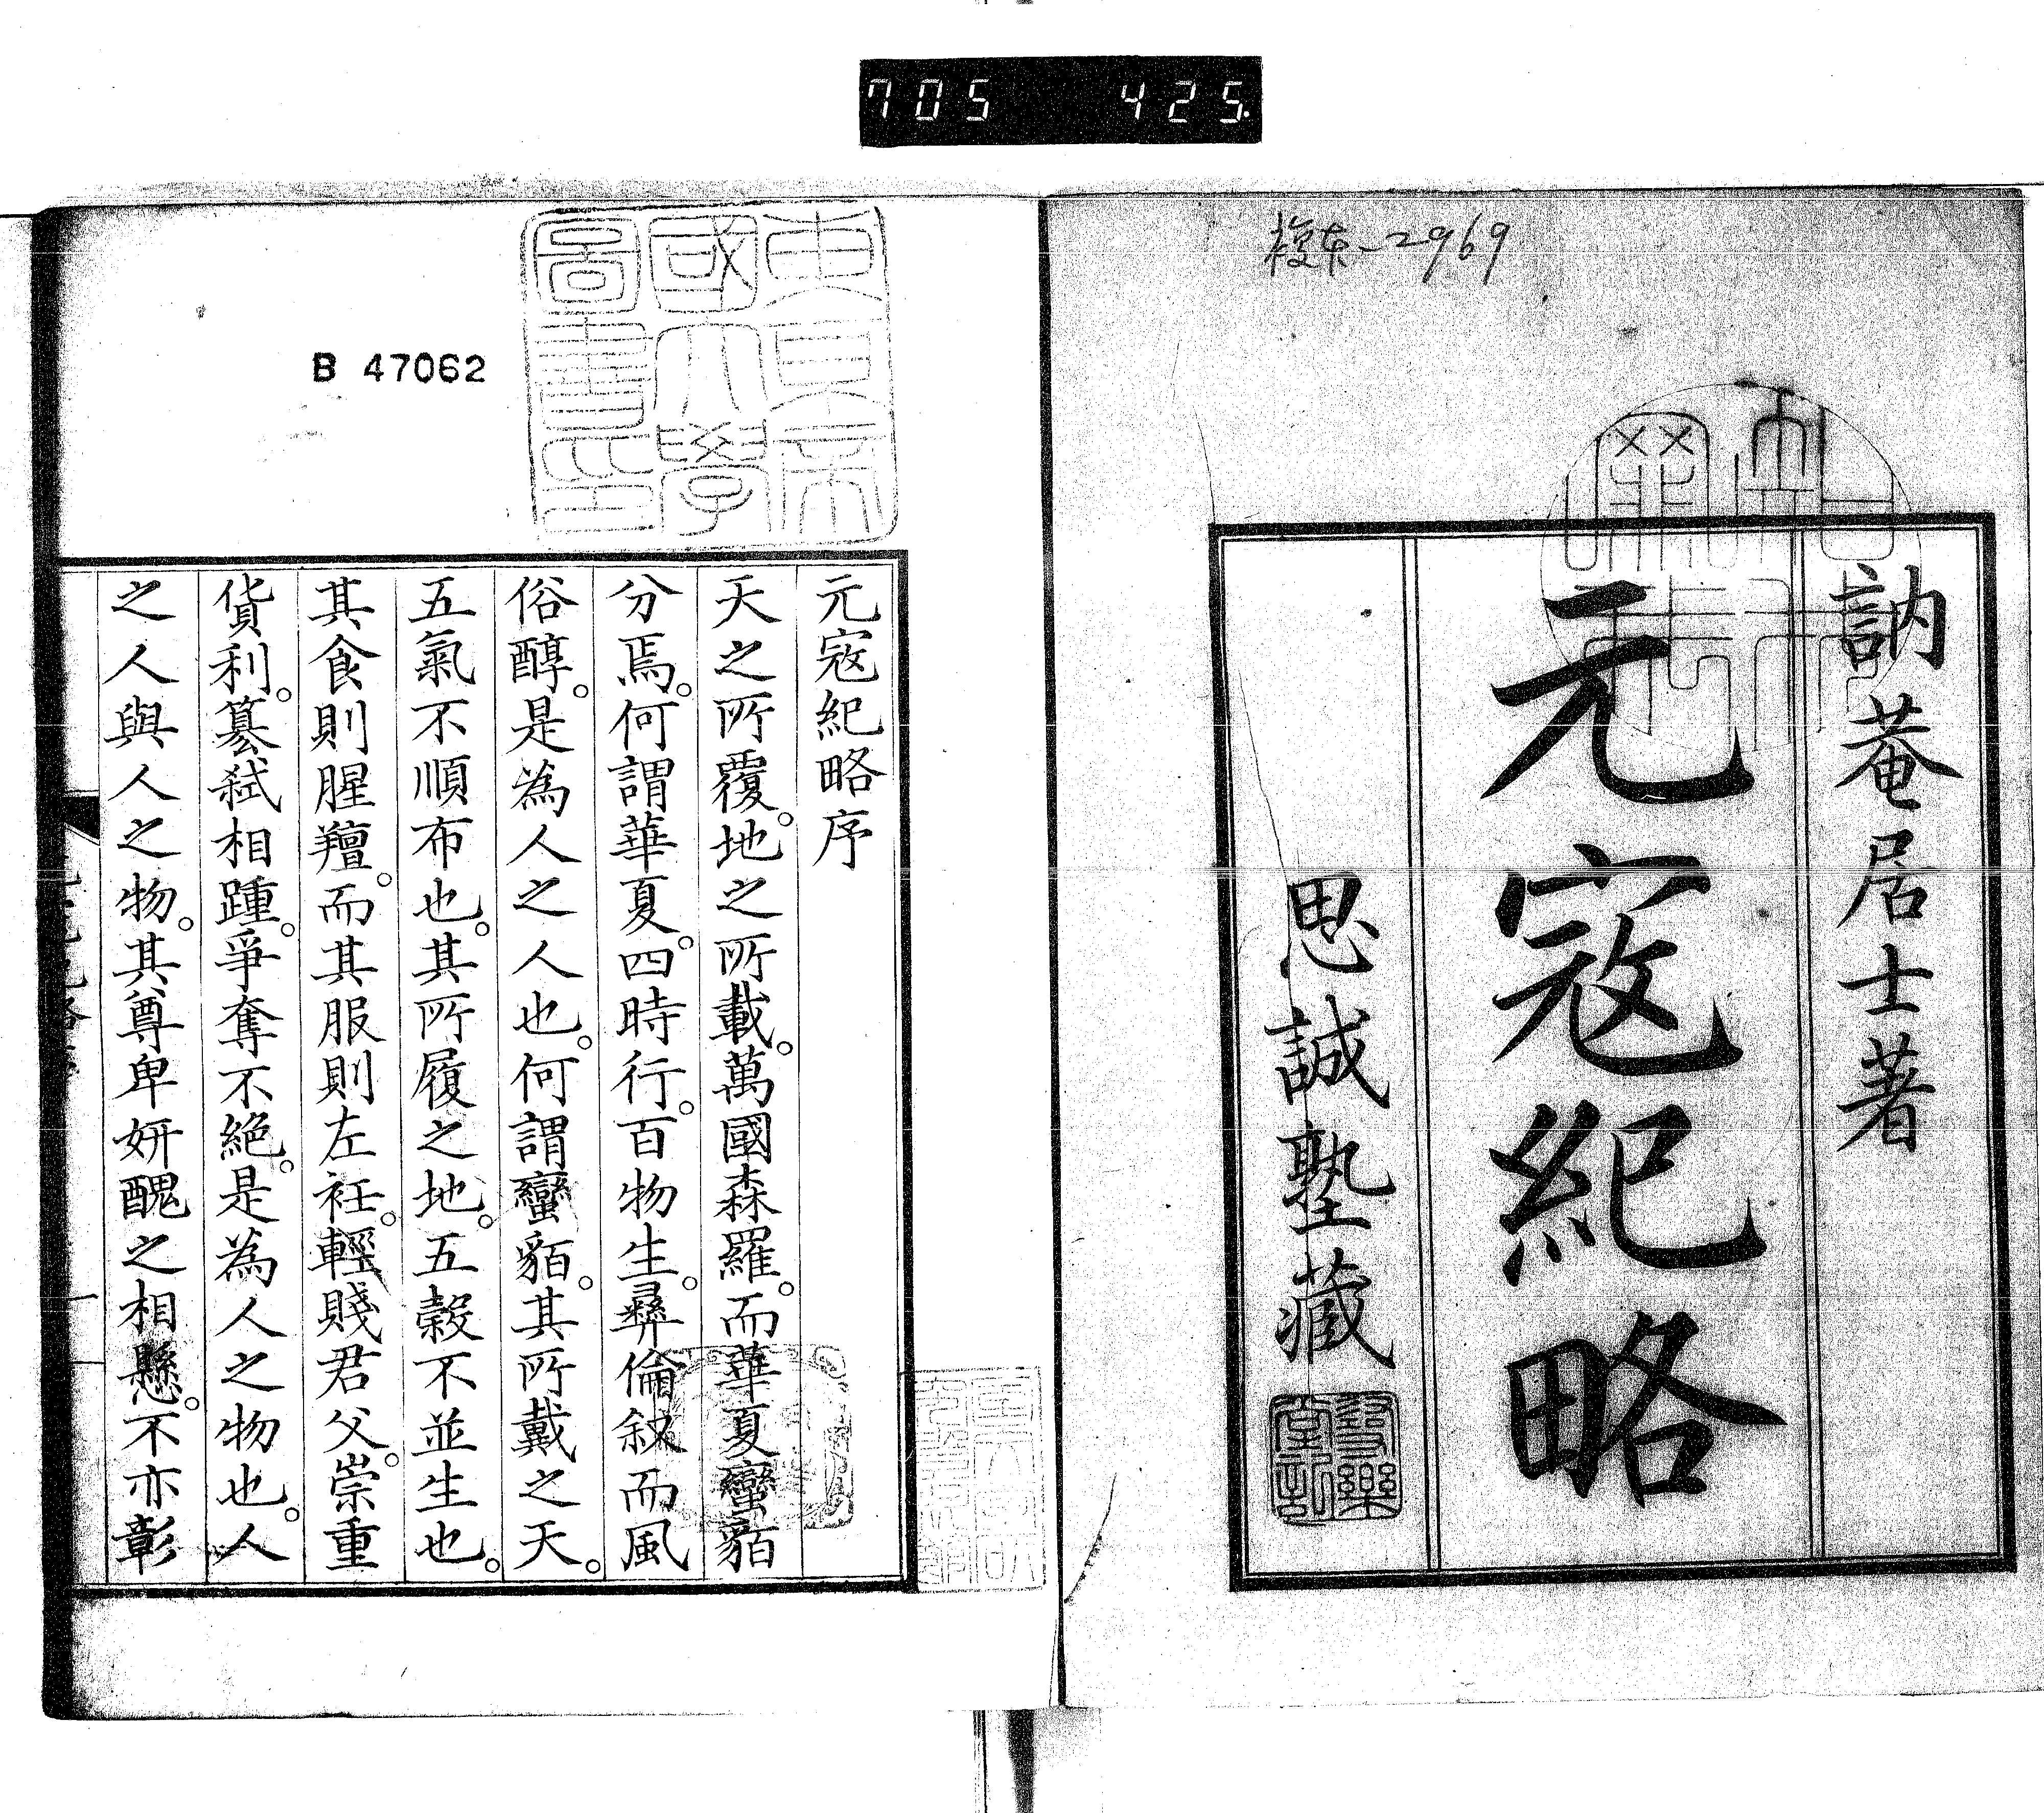 705 425.
複东-2969
訥菴居士著
元寇紀略
思誠塾藏
B 47062
東京帝
國大學
圖書印
元寇紀略序
天之所覆。地之所載。萬國森羅。而華夏蠻貊
分焉。何謂華夏。四時行。百物生。彝倫敘而風
俗醇。是為人之人也。何謂蠻貊。其所戴之天。
五氣不順布也。其所履之地。五穀不並生也。
其食則腥羶。而其服則左衽。輕賤君父。崇重
貨利。簒弑相踵。爭奪不絕。是為人之物也。人
之人與人之物。其尊卑妍醜之相懸。不亦彰